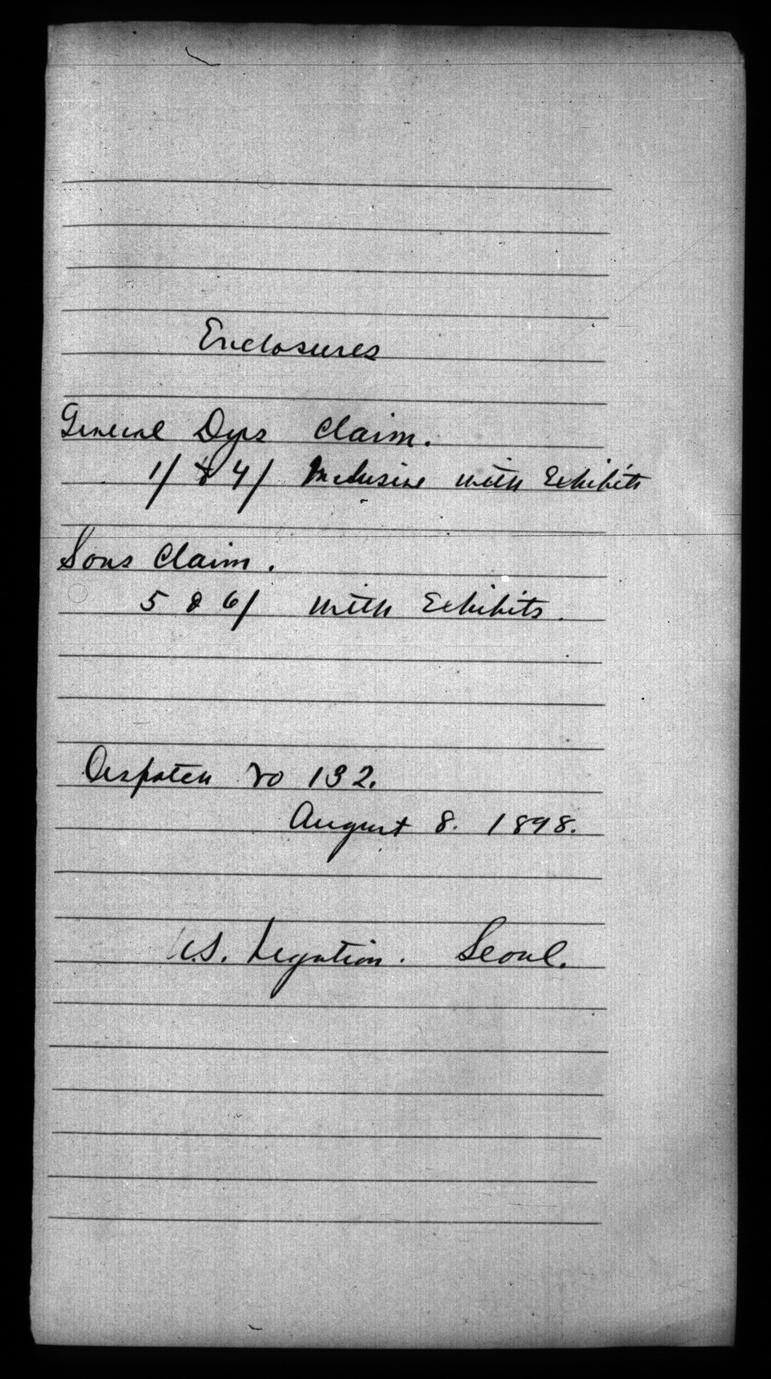 Enclosures
General Dyes Claim.
1/ & 4/ Inclusive with Exhibits
Sons Claim.
5 & 6/ with Exhibits.
Dispatch No 132.
August 8. 1898.
U.S. Legation. Seoul.